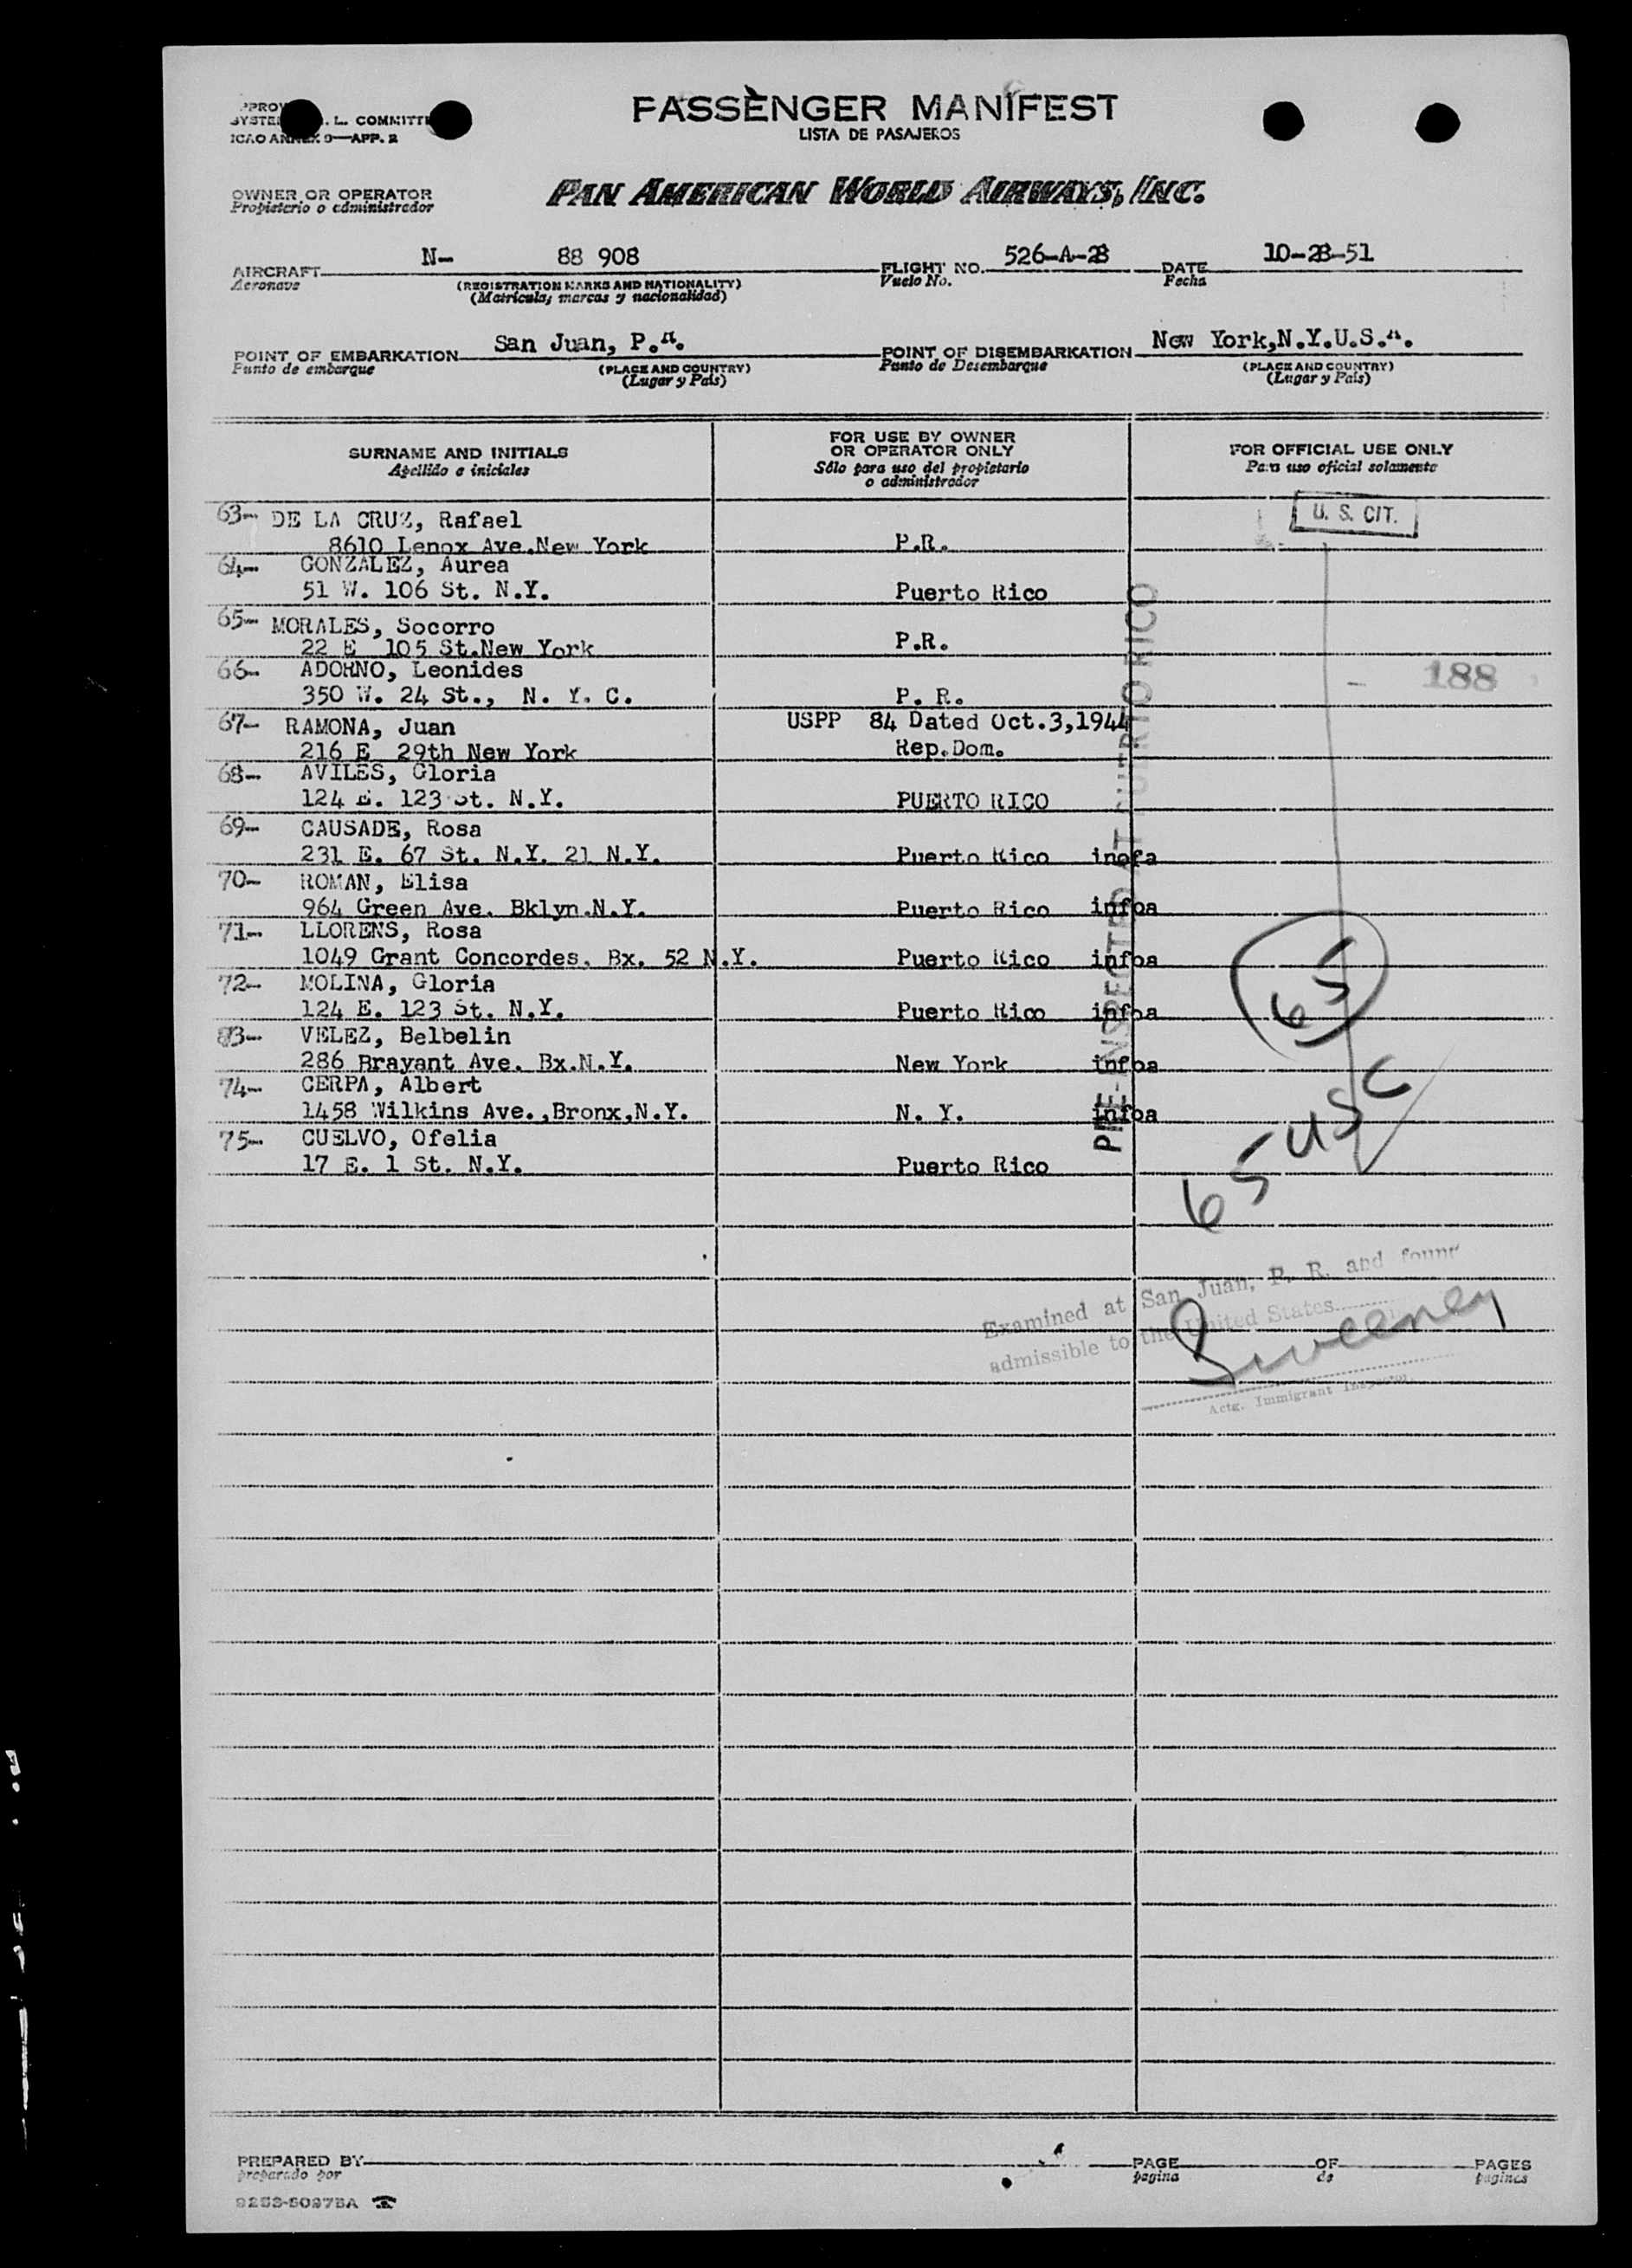 PASSENGER MANIFEST
LISTA DE PASAJEROS
L. COMMITT
ICAO ANNEX 9—APP. 2
OWNER OR OPERATOR
Propietario o administrador
PAN AMERICAN WORLD AIRWAYS, INC.
AIRCRAFT N- 88 908 FLIGHT NO. 526-A-28 DATE 10-28-51
Aeronave (REGISTRATION MARKS AND NATIONALITY) Vuelo No. Fecha
(Matrícula, marcas y nacionalidad)
POINT OF EMBARKATION San Juan, P. POINT OF DISEMBARKATION New York,N.Y.U.S.A.
Punto de embarque (PLACE AND COUNTRY) Punto de Desembarque (PLACE AND COUNTRY)
(Lugar y País) (Lugar y País)
SURNAME AND INITIALS FOR USE BY OWNER OR OPERATOR ONLY FOR OFFICIAL USE ONLY
Apellido e iniciales Sólo para uso del propietario o administrador Para uso oficial solamente
63- DE LA CRUZ, Rafael U. S. CIT.
8610 Lenox Ave.New York P.R.
64- GONZALEZ, Aurea
51 W. 106 St. N.Y. Puerto Rico
65- MORALES, Socorro
22 E 105 St.New York P.R.
66- ADORNO, Leonides 188
350 W. 24 St., N. Y. C. P. R.
67- RAMONA, Juan USPP 84 Dated Oct.3,1944
216 E 29th New York Rep.Dom.
68- AVILES, Gloria
124 E. 123 St. N.Y. PUERTO RICO
69- CAUSADE, Rosa
231 E. 67 St. N.Y. 21 N.Y. Puerto Rico inofa
70- ROMAN, Elisa
964 Green Ave. Bklyn.N.Y. Puerto Rico infoa
71- LLORENS, Rosa
1049 Grant Concordes. Bx. 52 N.Y. Puerto Rico infoa
72- MOLINA, Gloria
124 E. 123 St. N.Y. Puerto Rico infoa
VELEZ, Belbelin
286 Brayant Ave. Bx.N.Y. New York infoa
74- CERPA, Albert
1458 Wilkins Ave.,Bronx,N.Y. N. Y. infoa
75- CUELVO, Ofelia
17 E. 1 St. N.Y. Puerto Rico
PRE-INSPECTED AT PUERTO RICO
65
65 USC
Examined at San Juan, P. R. and found
admissible to the United States
Sweeney
Actg. Immigrant Inspector.
PREPARED BY PAGE OF PAGES
preparado por pagina de paginas